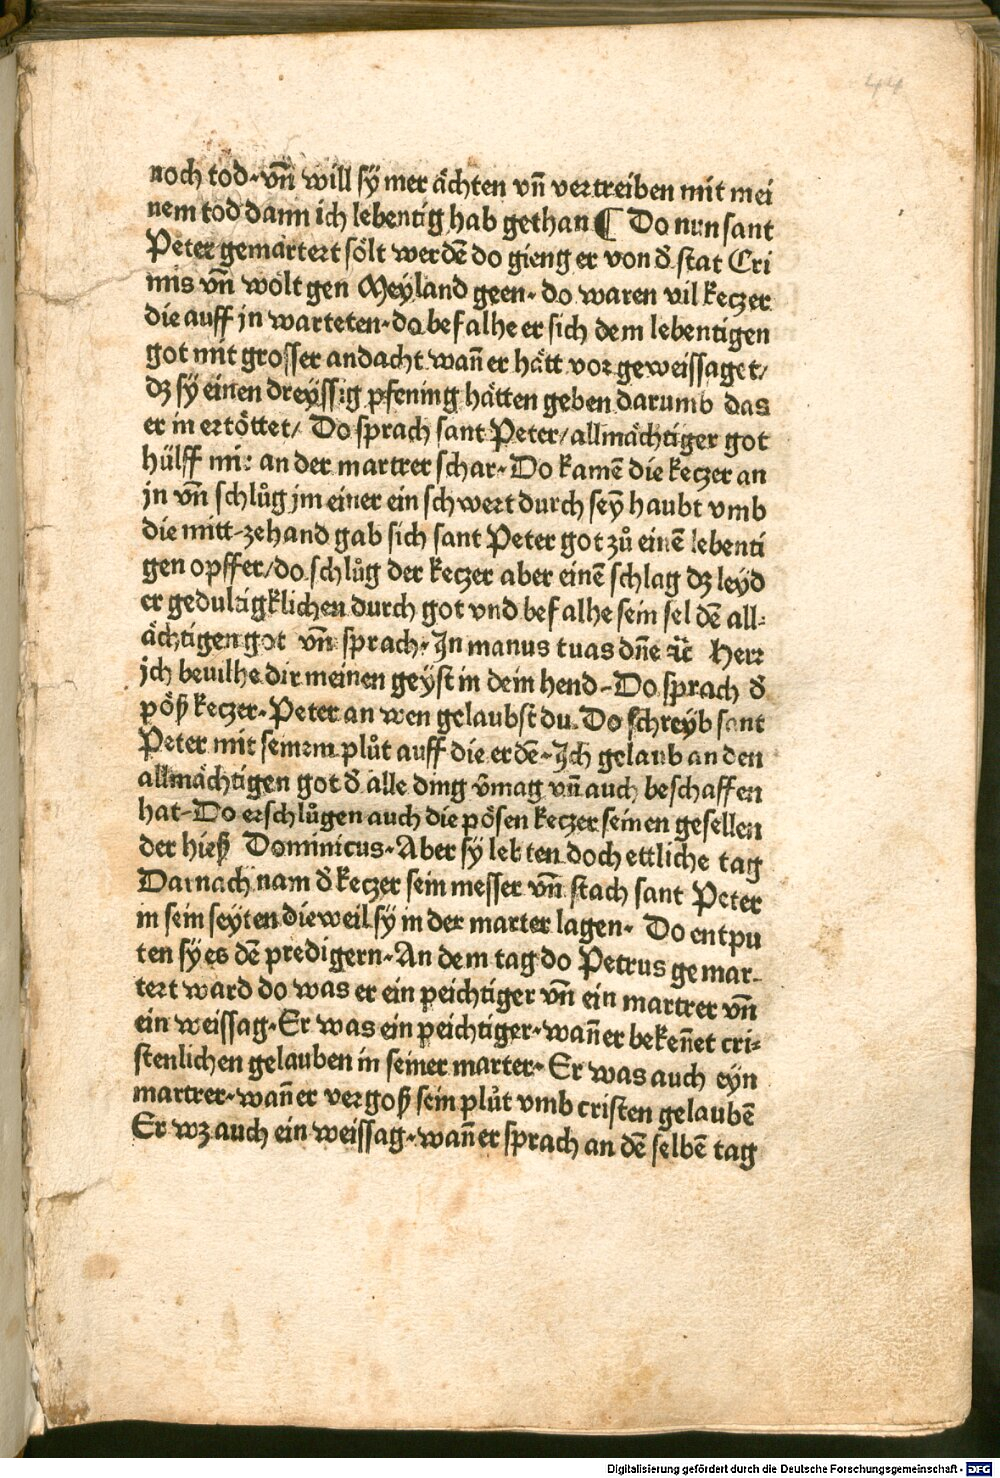 44
noch tod·vn̄ will sÿ mer ächten vn̄ vertreiben mit mei
nem tod dann ich lebentig hab gethan ¶ Do nun sant
Peter gemartert sölt werdē do gieng er von d̕ stat Cri
mis vn̄ wolt gen Meyland geen· do waren vil keczer
die auff jn warteten·do befalhe er sich dem lebentigen
got mit grosser andacht wan̄ er hätt vor geweissaget/
dz sÿ einen dreyssig pfening hätten geben darumb das
er in ertöttet/ Do sprach sant Peter/allmächtiger got
hülff mir an der martrer schar·Do kamē die keczer an
jn vn̄ schlůg jm einer ein schwert durch seȳ haubt vmb
die mitt-zehand gab sich sant Peter got zů einē lebenti
gen opffer/do schlůg der keczer aber einē schlag dz leyd
er gedultigklichen durch got vnd befalhe sein sel dē all⸗
ächtigen got vn̄ sprach·In manus tuas dn̄e ꝛc̄ Herr
ich beuilhe dir meinen geyst in dein hend-Do sprach d̕
pöß keczer·Peter an wen gelaubst du·Do schreyb sant
Peter mit seinem plůt auff die erdē·Ich gelaub an den
allmächtigen got d̕ alle ding v̄mag vn̄ auch beschaffen
hat-Do erschlůgen auch die pösen keczer seinen gesellen
der hieß Dominicus·Aber sÿ lebten doch ettliche tag
Darnach nam d̕ keczer sein messer vn̄ stach sant Peter
in sein seyten dieweil sÿ in der marter lagen· Do entpu
ten sÿ es dē predigern·An dem tag do Petrus gemar⸗
tert ward do was er ein peichtiger vn̄ ein martrer vn̄
ein weissag·Er was ein peichtiger·wan̄ er beken̄et cri⸗
stenlichen gelauben in seiner marter· Er was auch eyn
martrer·wan̄ er vergoß sein plůt vmb cristen gelaubē
Er wz auch ein weissag·wan̄ er sprach an dē selbē tag
Digitalisierung gefördert durch die Deutsche Forschungsgemeinschaft - DFG